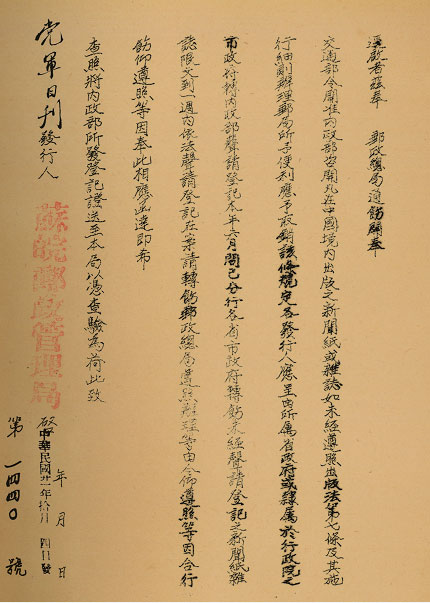 逕啟者茲奉 郵政總局通飭開奉
交通部令開准內政部咨開凡在中國境內出版之新聞紙或雜誌如未經遵照出版法第七條及其施
行細則辦理郵局所予便利應予取銷該條規定各發行人應呈由所屬省政府或隸屬於行政院之
市政府轉內政部聲請登記本年六月間已分行各省市政府轉飭未經聲請登記之新聞紙雜
誌限文到一週內依法聲請登記在案請轉飭郵政總局遵照辦理等由令仰遵照等因合行
飭仰遵照等因奉此相應函達即希
查照將內政部所發登記證送至本局以憑查驗為荷此致
黨軍日刊發行人
蘇皖郵政管理局
啟 年 月 日
中華民國廿一年拾月 四日發
第 一四四〇 號